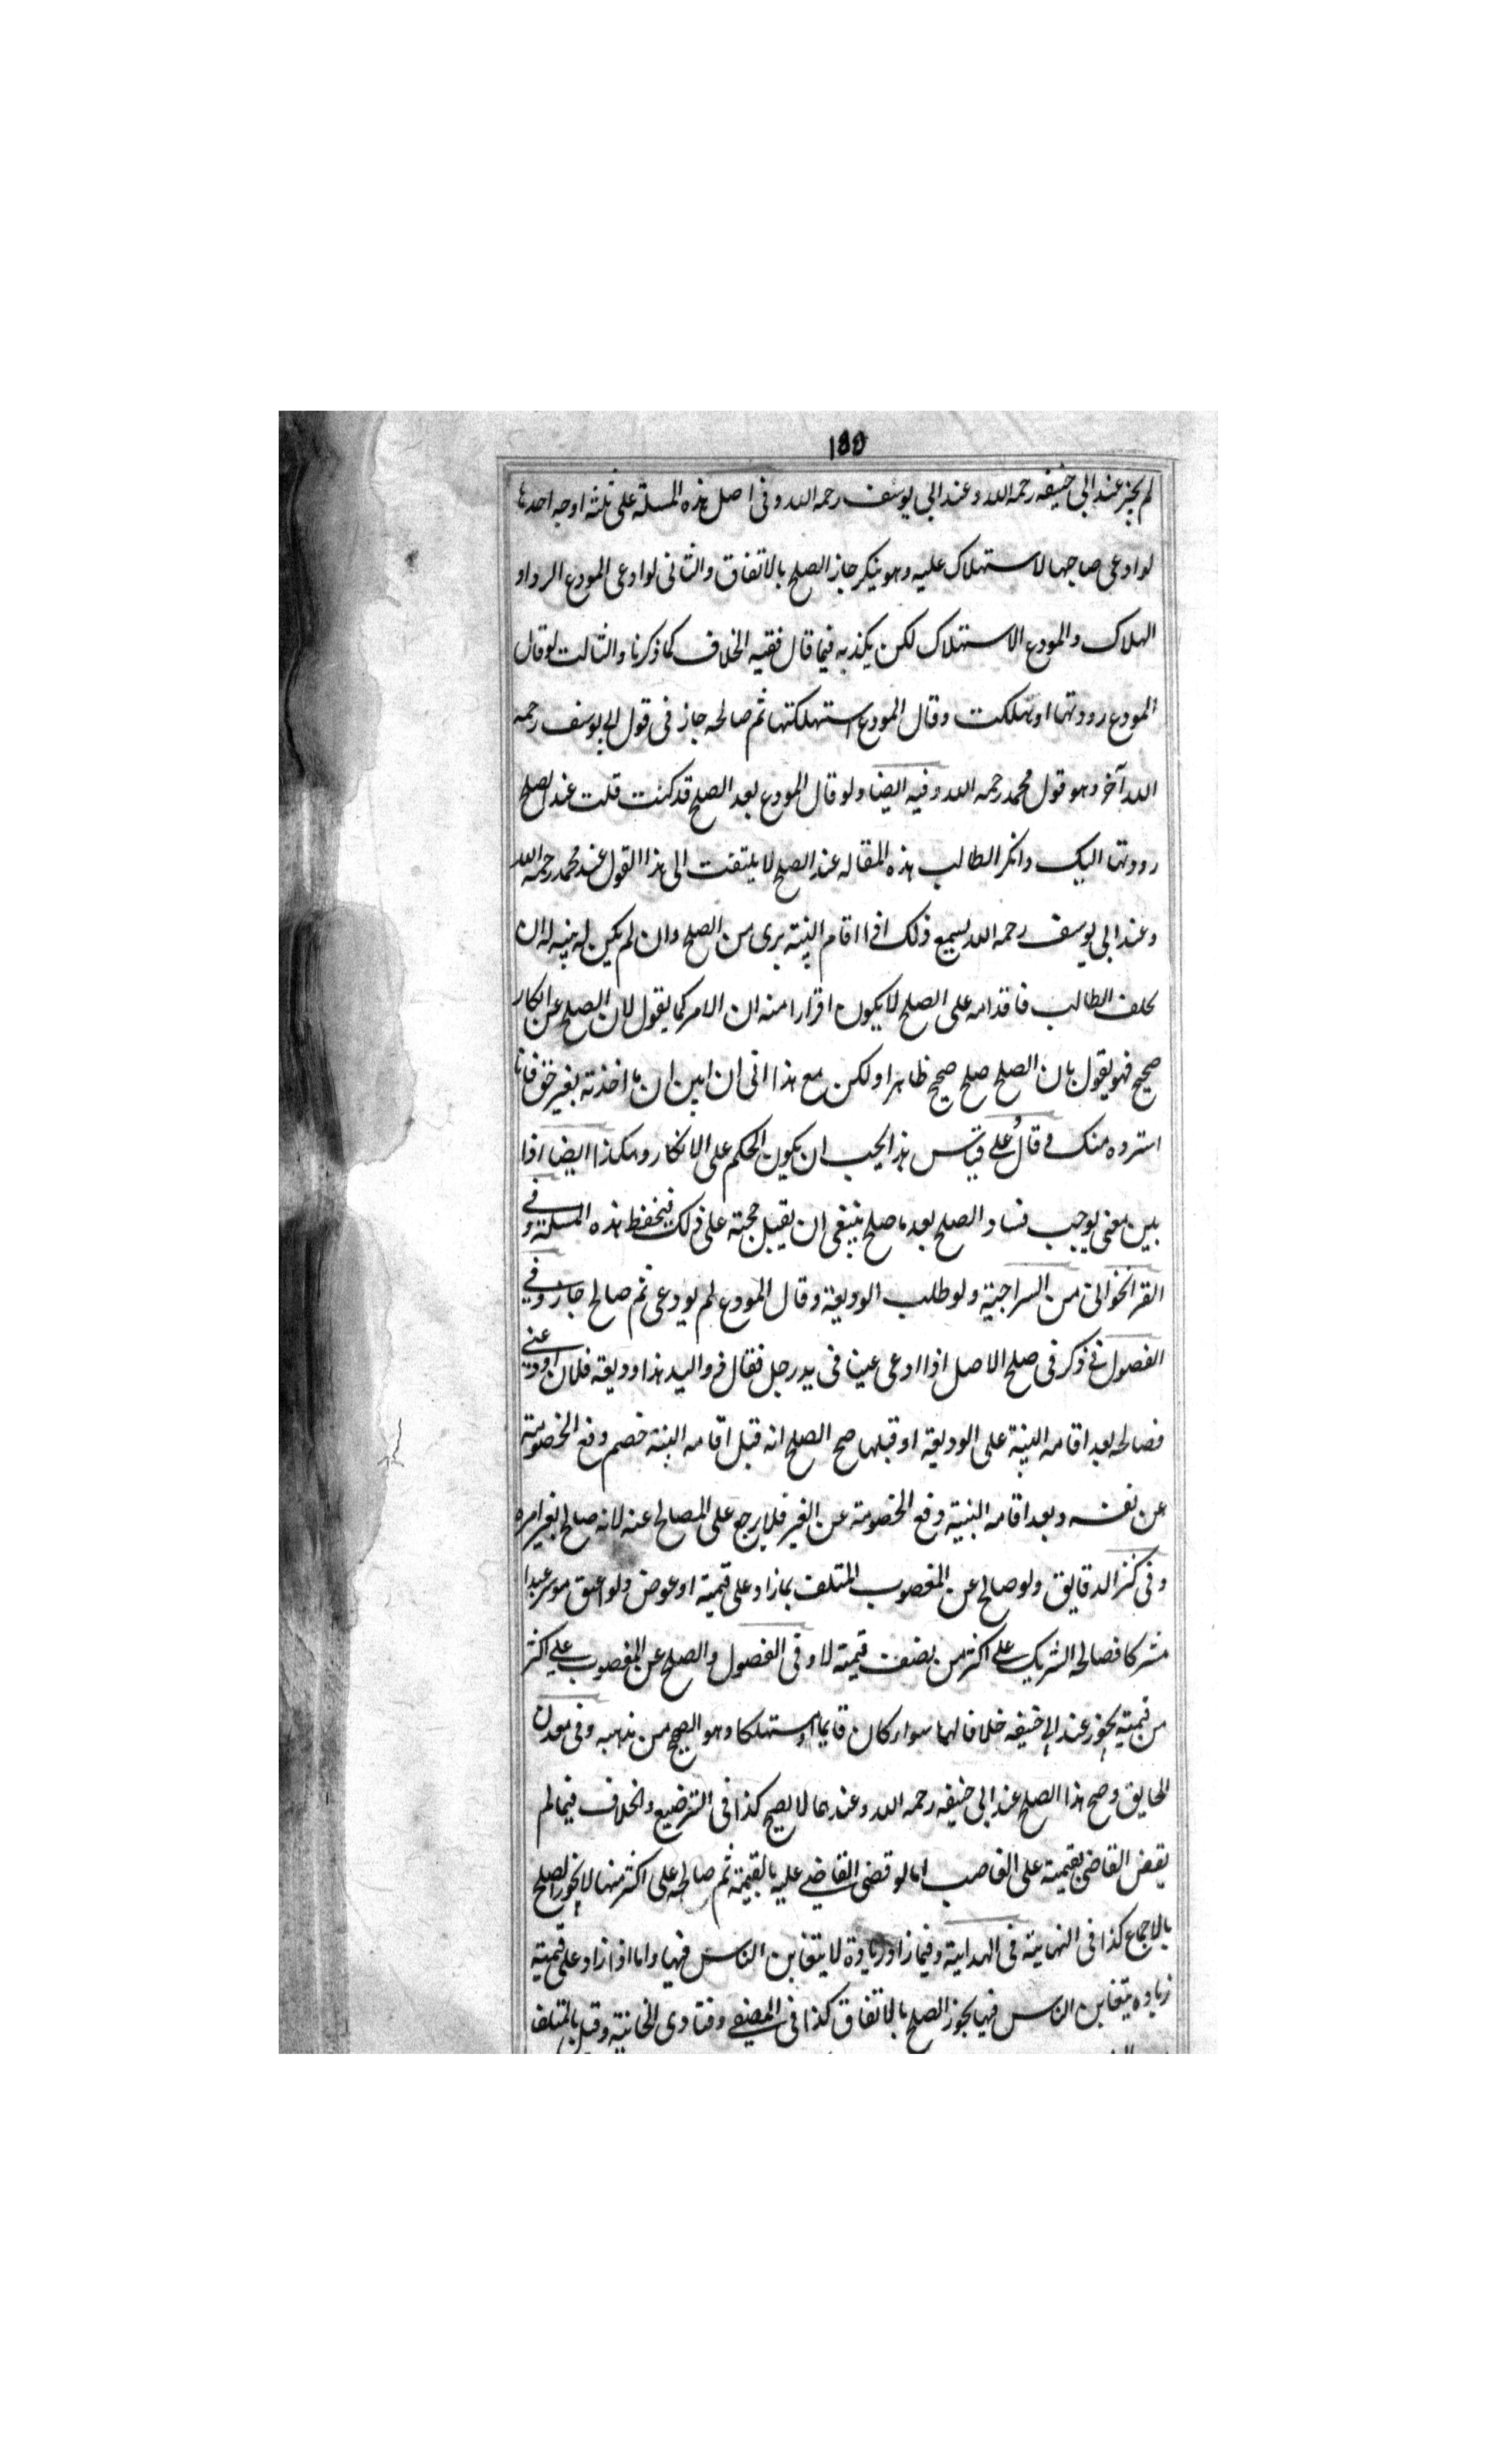 ١٥٥
لم يجز عند ابى حنيفه رحمه الله وعند ابى يوسف رحمه الله وفى اصل هذه المسلة على ثلثه اوجه احدها
لو ادعى صاحبها الاستهلاك عليه وهو ينكر جاز الصلح بالاتفاق والثانى لو ادعى المودع الرد او
الهلاك والمودع الاستهلاك لكن يكذبه فيما قال ففيه الخلاف كما ذكرنا والثالث لو قال
المودع رددتها او هلكت وقال المودع استهلكتها ثم صالحه جاز فى قول ابى يوسف رحمه
الله آخر وهو قول محمد رحمه الله وفيه ايضا ولو قال المودع بعد الصلح قد كنت قلت عند الصلح
رددتها اليك وانكر الطالب هذه المقاله عند الصلح لا يلتفت الى هذا القول عند محمد رحمه الله
وعند ابى يوسف رحمه الله يسمع ذلك اذا اقام البينة برى من الصلح وان لم يكن له بينه له ان
يحلف الطالب فاقدامه على الصلح لا يكون اقرارا منه ان الامر كما يقول لان الصلح عن انكار
صحيح فهو يقول بان الصلح صلح صحيح ظاهرا ولكن مع هذا انى ان ابين ان ما اخذته بغير حق فانا
استرده منك قال على قياس هذا يجب ان يكون الحكم على الانكار وهكذا ايضا اذا
بين معنى يوجب فساد الصلح بعد ما صلح ينبغى ان يقبل حجته على ذلك فيحفظ هذه المسلة وفى
القراخوانى من السراجية ولو طلب الوديعة وقال المودع لم يودعنى ثم صالح جاز وفى
الفصول ذكر فى صلح الاصل اذا ادعى عينا فى يد رجل فقال ذو اليد هذا وديعة فلان اودعنى
فصالحه بعد اقامه البينة على الوديعة او قبلها صح الصلح انه قبل اقامه البينة خصم دفع الخصومة
عن نفسه وبعد اقامه البينة دفع الخصومة عن الغير فلا يرجع على المصالح عنه لانه صالح بغير امره
وفى كنز الدقايق ولو صالح عن المغصوب المتلف بما زاد على قيمته او عوض ولو اعتق موسر عبدا
مشتركا فصالحه الشريك على اكثر من نصف قيمته لا وفى الفصول والصلح عن المغصوب على اكثر
من قيمته يجوز عند ابى حنيفه خلافا لهما سوا كان قايما او مستهلكا وهو الصحيح من مذهبه وفى معدن
الحقايق وصح هذا الصلح عند ابى حنيفه رحمه الله وعندهما لا يصح كذا فى التوضيح والخلاف فيما لم
يقض القاضى بقيمته على الغاصب اما لو قضى القاضى عليه بالقيمة ثم صالحه على اكثر منها لا يجوز الصلح
بالاجماع كذا فى النهايته فى الهداية وفيما زاد زيادة لا يتغابن الناس فيها واما اذا زاد على قيمته
زياده يتغابن الناس فيها يجوز الصلح بالاتفاق كذا فى المصفى وفتاوى الخانية وقيد بالمتلف